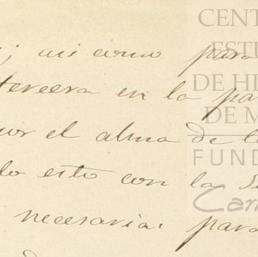 ; asi como para
tercera en la pa
por el alma de l
do esto con la S
necesaria: para
CENT
EST
DE HI
DE M
FUND
Car